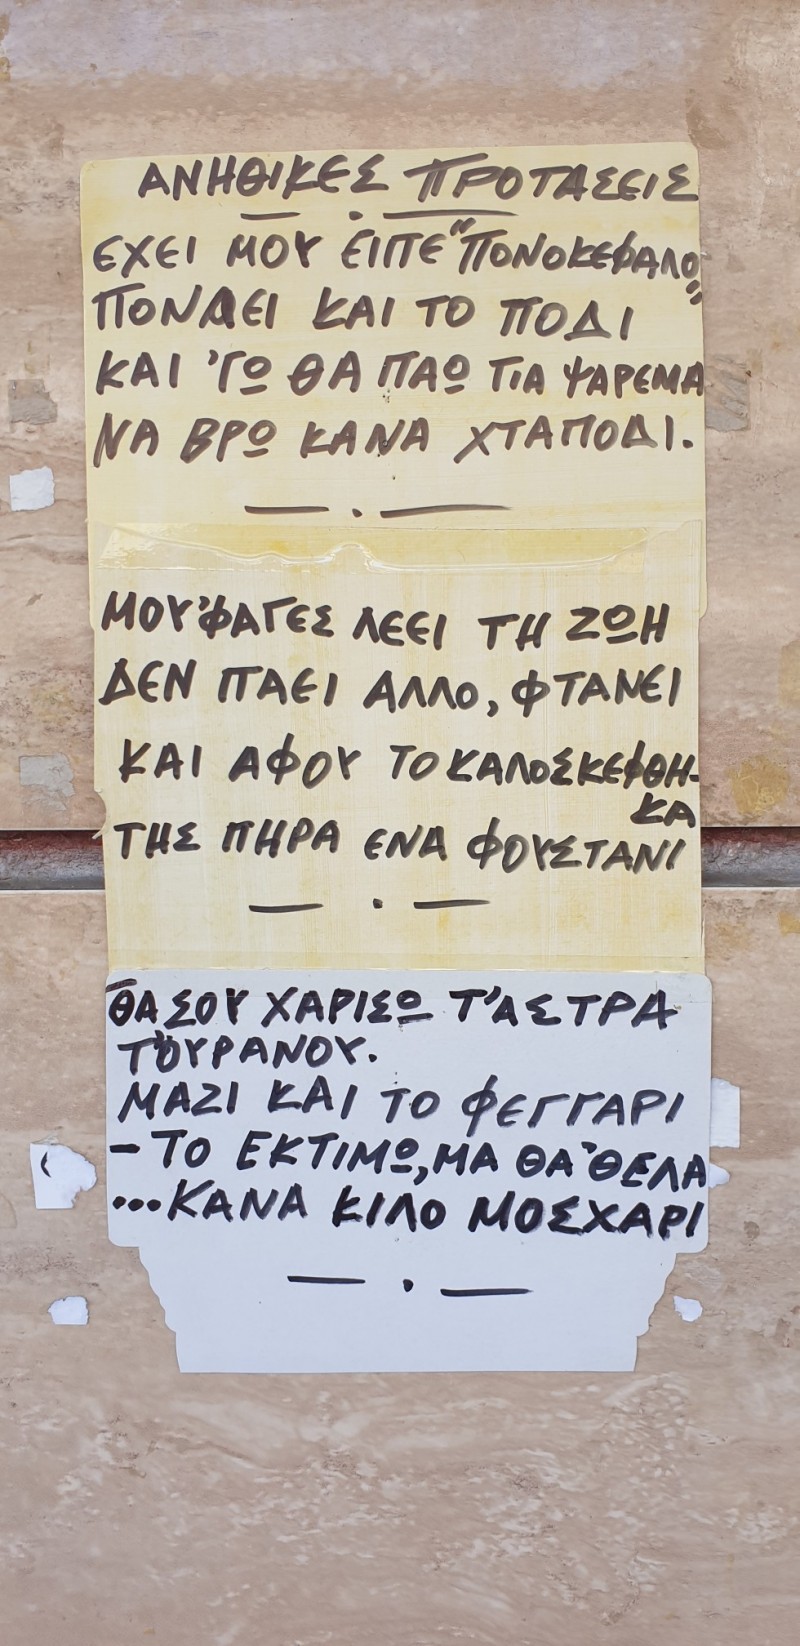 ΑΝΗΘΙΚΕΣ ΠΡΟΤΑΣΕΙΣ
ΕΧΕΙ ΜΟΥ ΕΙΠΕ "ΠΟΝΟΚΕΦΑΛΟ"
ΠΟΝΑΕΙ ΚΑΙ ΤΟ ΠΟΔΙ
ΚΑΙ 'ΓΩ ΘΑ ΠΑΩ ΓΙΑ ΨΑΡΕΜΑ
ΝΑ ΒΡΩ ΚΑΝΑ ΧΤΑΠΟΔΙ.
ΜΟΥ'ΦΑΓΕΣ ΛΕΕΙ ΤΗ ΖΩΗ
ΔΕΝ ΠΑΕΙ ΑΛΛΟ, ΦΤΑΝΕΙ
ΚΑΙ ΑΦΟΥ ΤΟ ΚΑΛΟΣΚΕΦΘΗ-
ΚΑ
ΤΗΣ ΠΗΡΑ ΕΝΑ ΦΟΥΣΤΑΝΙ
ΘΑ ΣΟΥ ΧΑΡΙΣΩ Τ'ΑΣΤΡΑ
Τ'ΟΥΡΑΝΟΥ.
ΜΑΖΙ ΚΑΙ ΤΟ ΦΕΓΓΑΡΙ
- ΤΟ ΕΚΤΙΜΩ, ΜΑ ΘΑ 'ΘΕΛΑ
...ΚΑΝΑ ΚΙΛΟ ΜΟΣΧΑΡΙ